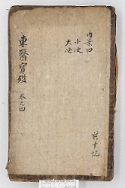 內景四
小便
大便
東醫寶鑑 卷之四